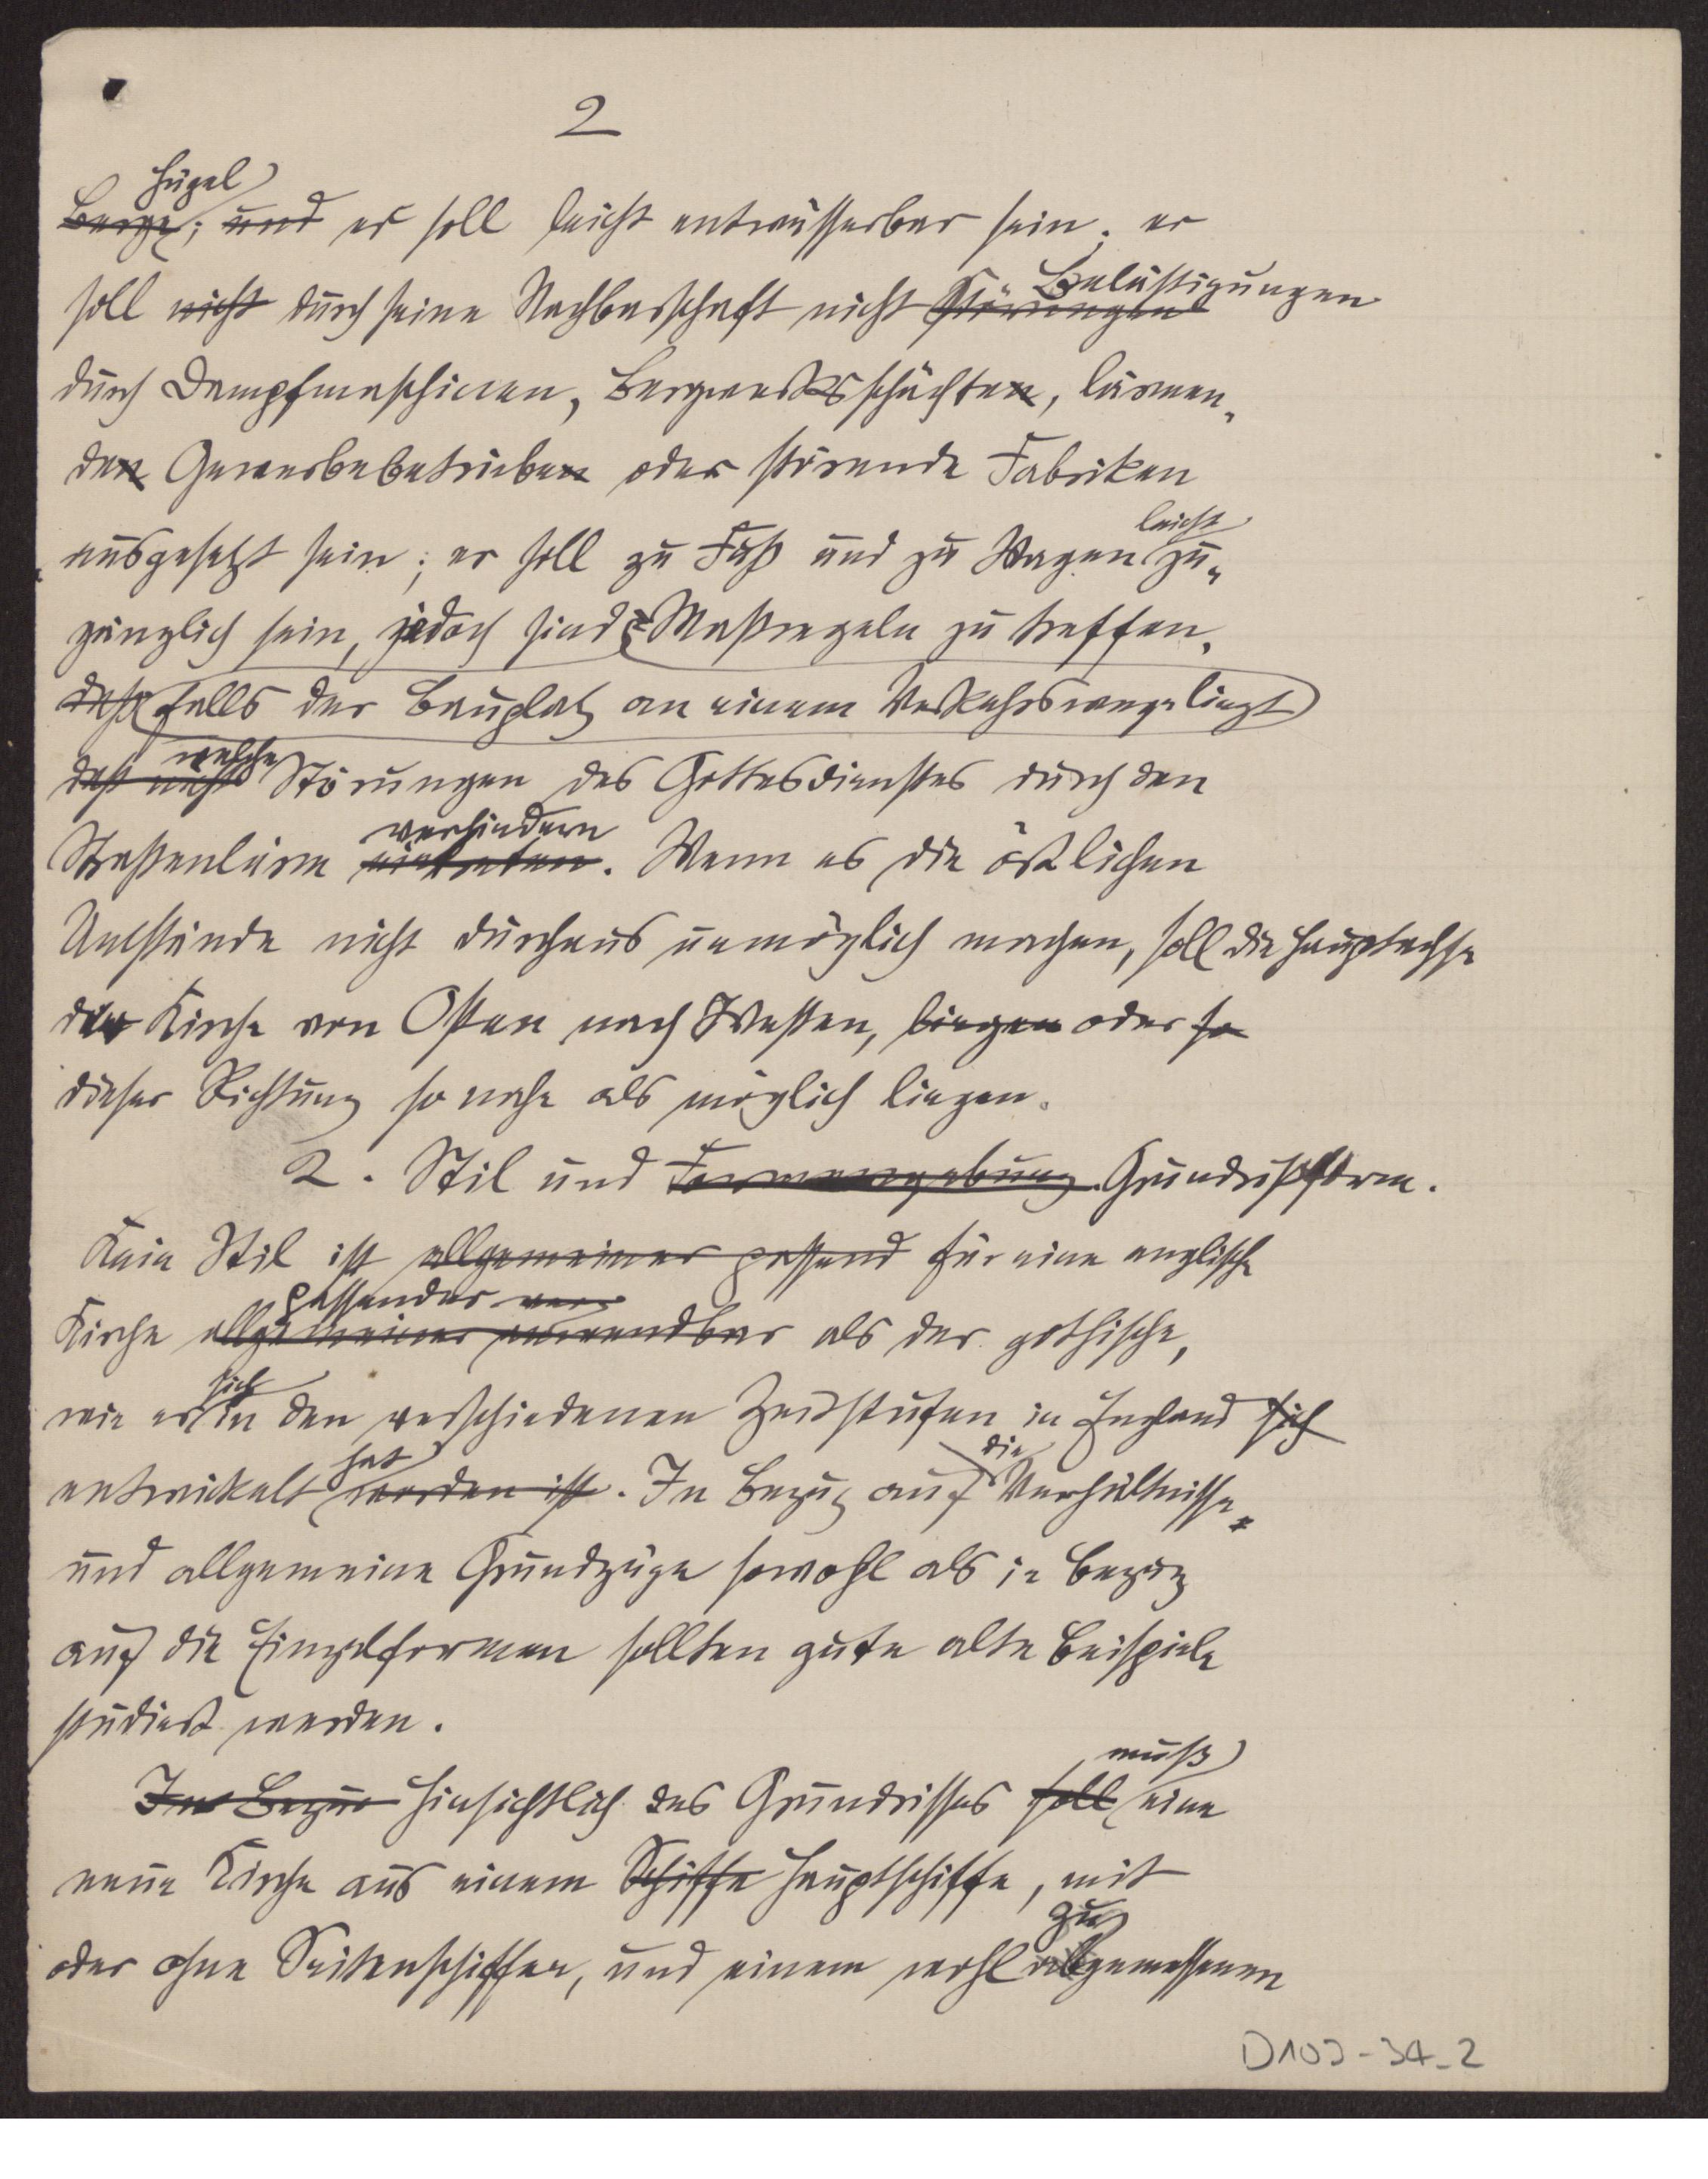 2
Hügel
Berge; und er soll leicht entwässerbar sein; er
Belästigungen
soll nicht durch seine Nachbarschaft nicht Störungen
durch Dampfmaschinen, Bergwerksschächten, lärmen„
den Gewerbebetrieben oder störende Fabriken
leicht
ausgesetzt sein; er soll zu Fuß und zu Wagen zu„
gänglich sein, jedoch sind Maßregeln zu treffen,
daß falls der Bauplatz an einem Verkehrswege liegt
welche
daß nicht Störungen des Gottesdienstes durch den
verhindern
Straßenlärm eintreten. Wenn es die örtlichen
Umstände nicht durchaus unmöglich machen, soll die Hauptachse
der Kirche von Osten nach Westen, liegen oder so
dieser Richtung so nahe als möglich liegen.
2. Stil und Formengebung Grundrißform.
Kein Stil ist allgemeiner passend für eine englische
passender
Kirche allgemeiner anwendbar als der gothische,
sich
wie er in den verschiedenen Zeitstufen in England sich
hat die
entwickelt worden ist. In Bezug auf Verhältnisse
und allgemeine Grundzüge sowohl als in Bezug
auf die Einzelformen sollten gute alte Beispiele
studiert werden.
muß
In Bezug Hinsichtlich des Grundrisses soll eine
neue Kirche aus einem Schiffe Hauptschiffe, mit
zu
oder ohne Seitenschiffen, und einem wohl abgemessenen
D103-34-2